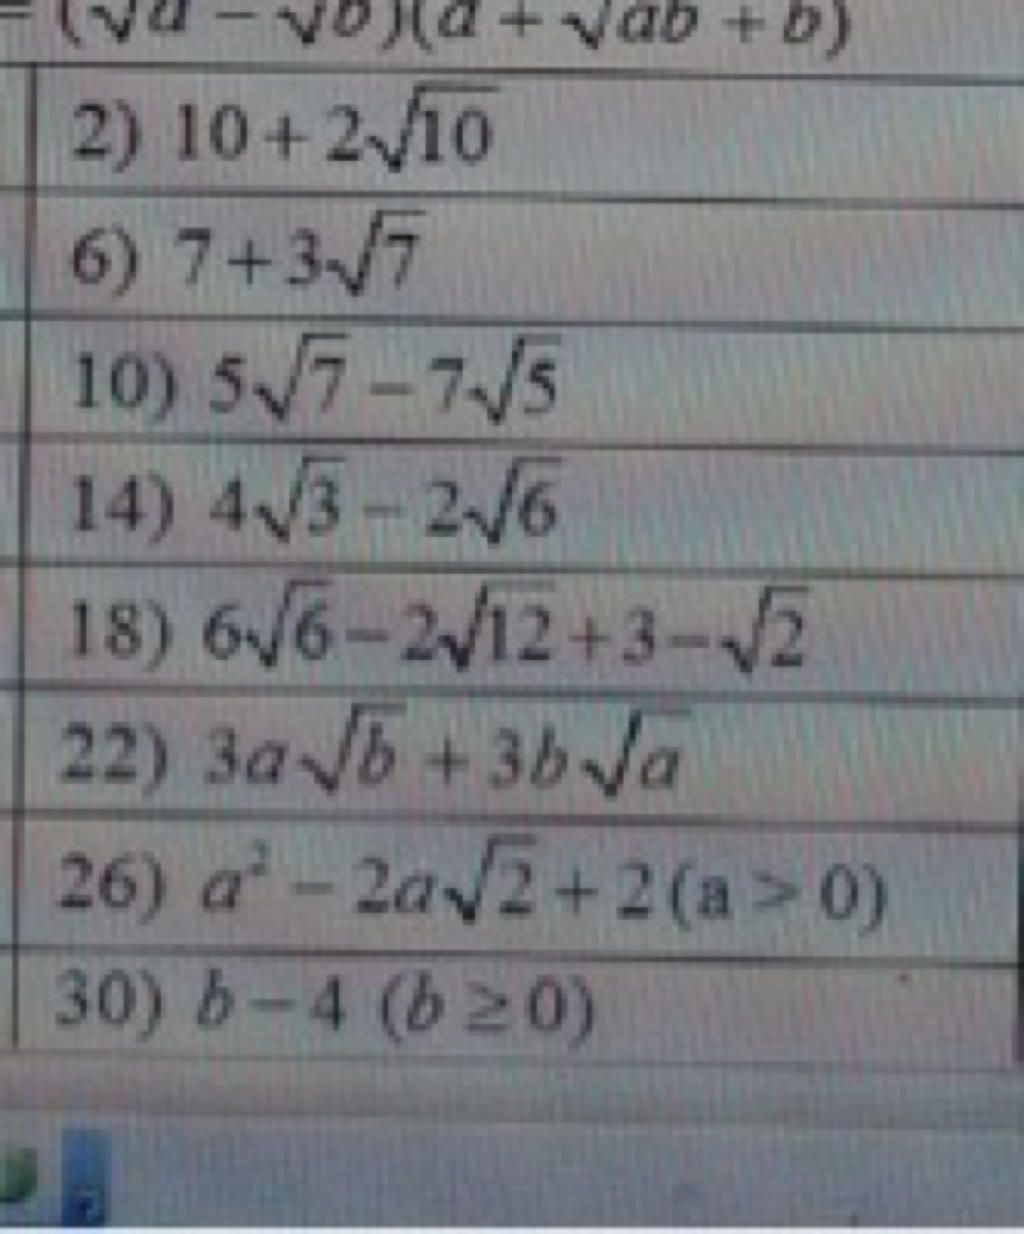 = (√a − √b)(a + √ab + b)
2) 10 + 2√10
6) 7 + 3√7
10) 5√7 − 7√5
14) 4√3 − 2√6
18) 6√6 − 2√12 + 3 − √2
22) 3a√b + 3b√a
26) a² − 2a√2 + 2 (a > 0)
30) b − 4 (b ≥ 0)